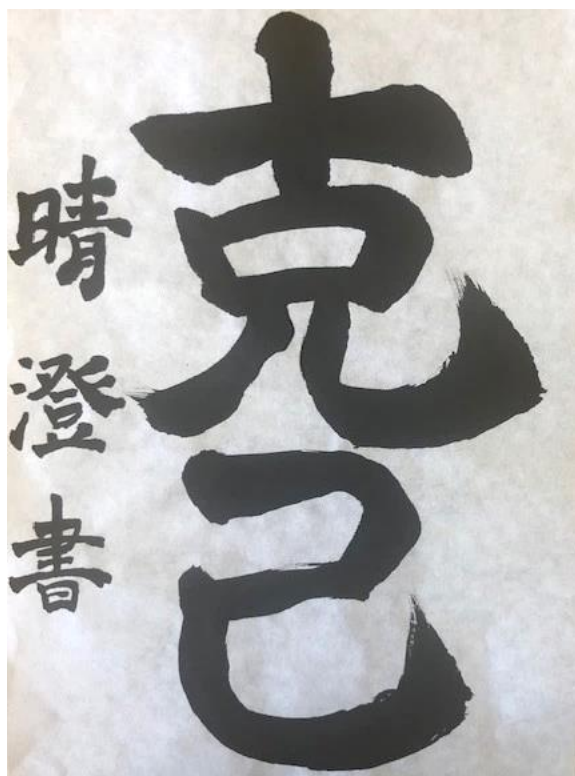 克己
晴澄書